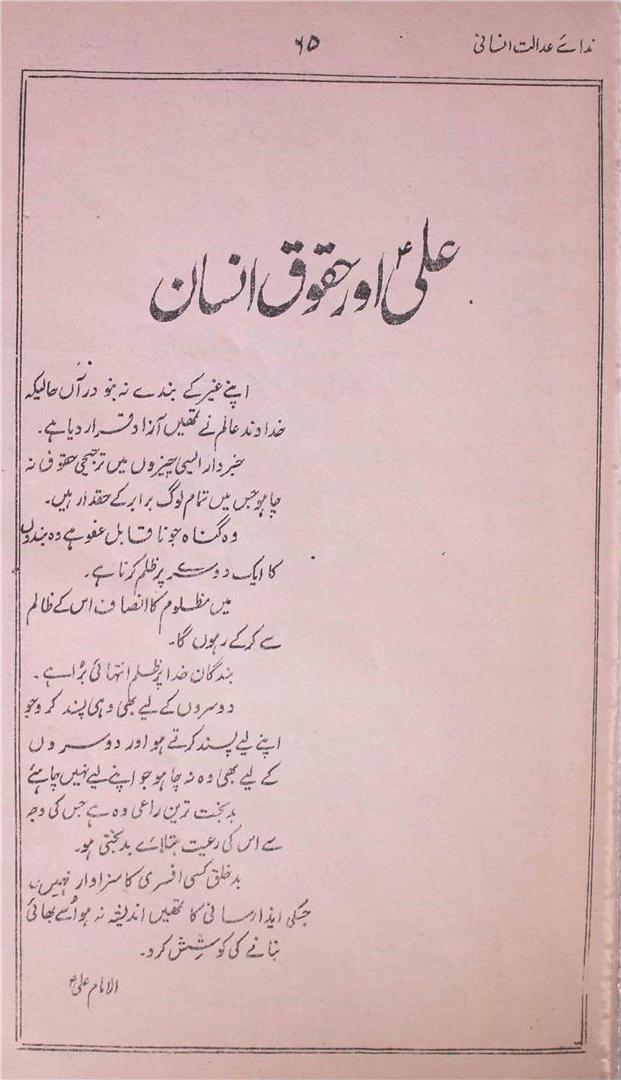 ندائے عدالت انسانی
۶۵
علیؑ اور حقوق انسان
اپنے غیر کے بندے نہ بنو درآں حالیکہ
خداوند عالم نے تمھیں آزاد قرار دیا ہے۔
خبردار ایسی چیزوں میں ترجیحی حقوق نہ
چاہو جس میں تمام لوگ برابر کے حقدار ہیں۔
وہ گناہ جو ناقابل عفو ہے وہ بندوں
کا ایک دوسرے پر ظلم کرنا ہے۔
میں مظلوم کا انصاف اس کے ظالم
سے کر کے رہوں گا۔
بندگان خدا پر ظلم انتہائی برا ہے۔
دوسروں کے لیے بھی وہی پسند کرو جو
اپنے لیے پسند کرتے ہو اور دوسروں
کے لیے بھی وہ نہ چاہو جو اپنے لیے نہیں چاہتے
بدبخت ترین راعی وہ ہے جس کی وجہ
سے اس کی رعیت مبتلائے بدبختی ہو۔
بدخلق کسی افسری کا سزاوار نہیں
جسکی ایذا رسانی کا تمھیں اندیشہ نہ ہو اُسے بھائی
بنانے کی کوشش کرو۔
الامام علیؑ